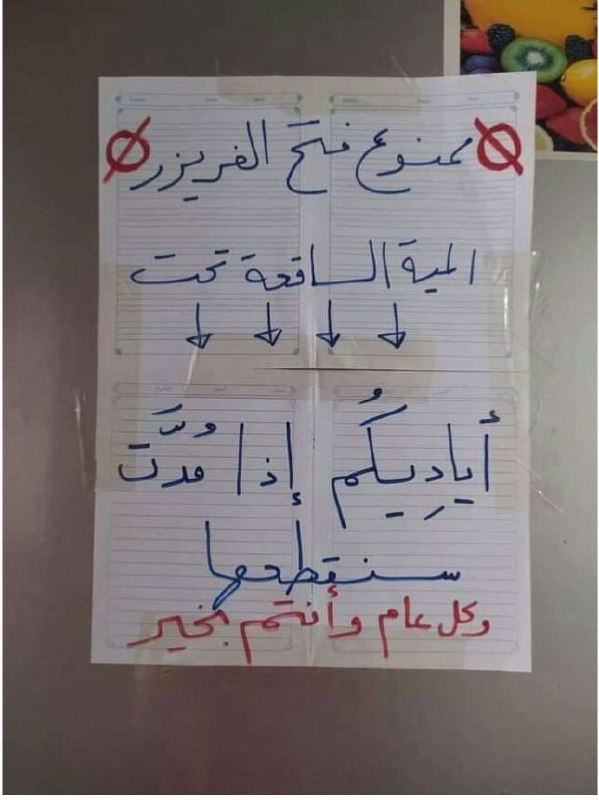 ممنوع فتح الفريزر
المية الساقعة تحت
أياديكُم إذا مُدَّت
سنقطعها
وكل عام وأنتم بخير